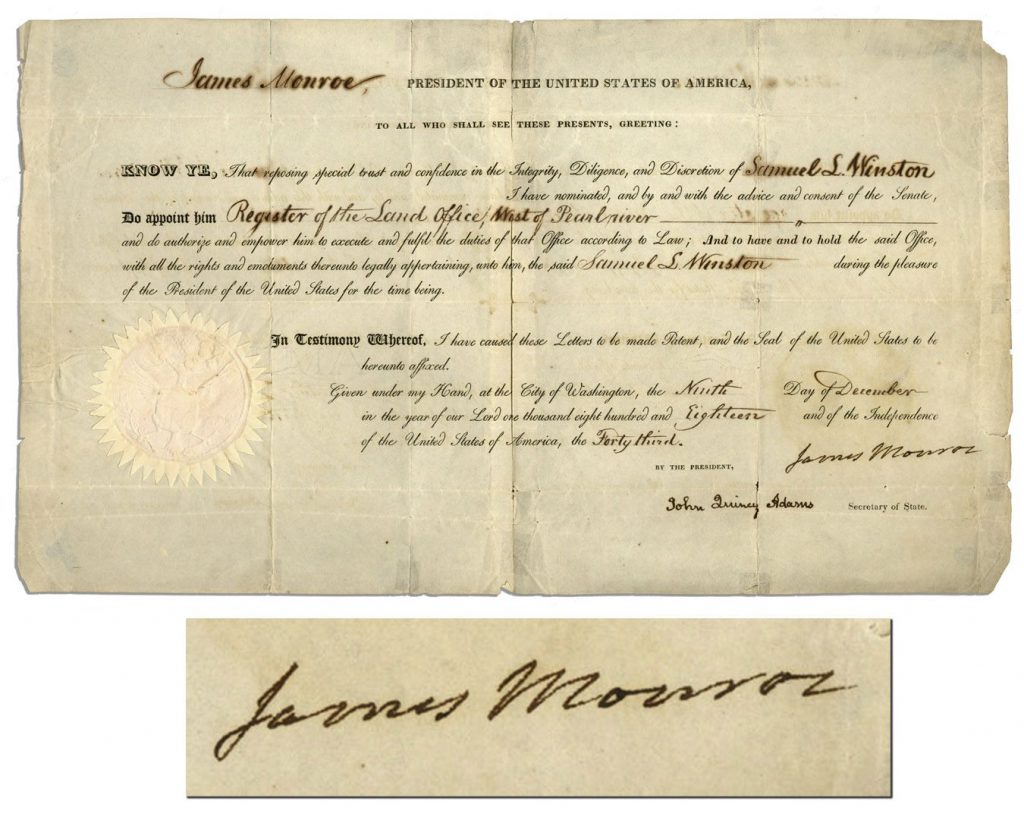 James Monroe, PRESIDENT OF THE UNITED STATES OF AMERICA,
TO ALL WHO SHALL SEE THESE PRESENTS, GREETING:
KNOW YE, That reposing special trust and confidence in the Integrity, Diligence, and Discretion of Samuel L. Winston
I have nominated, and by and with the advice and consent of the Senate,
Do appoint him Register of the Land Office, West of Pearl river
and do authorize and empower him to execute and fulfil the duties of that Office according to Law; And to have and to hold the said Office,
with all the rights and emoluments thereunto legally appertaining, unto him, the said Samuel L. Winston during the pleasure
of the President of the United States for the time being.
In Testimony Whereof, I have caused these Letters to be made Patent, and the Seal of the United States to be
hereunto affixed.
Given under my Hand, at the City of Washington, the Ninth Day of December
in the year of our Lord one thousand eight hundred and Eighteen and of the Independence
of the United States of America, the Forty third.
James Monroe
BY THE PRESIDENT,
John Quincy Adams Secretary of State.
James Monroe